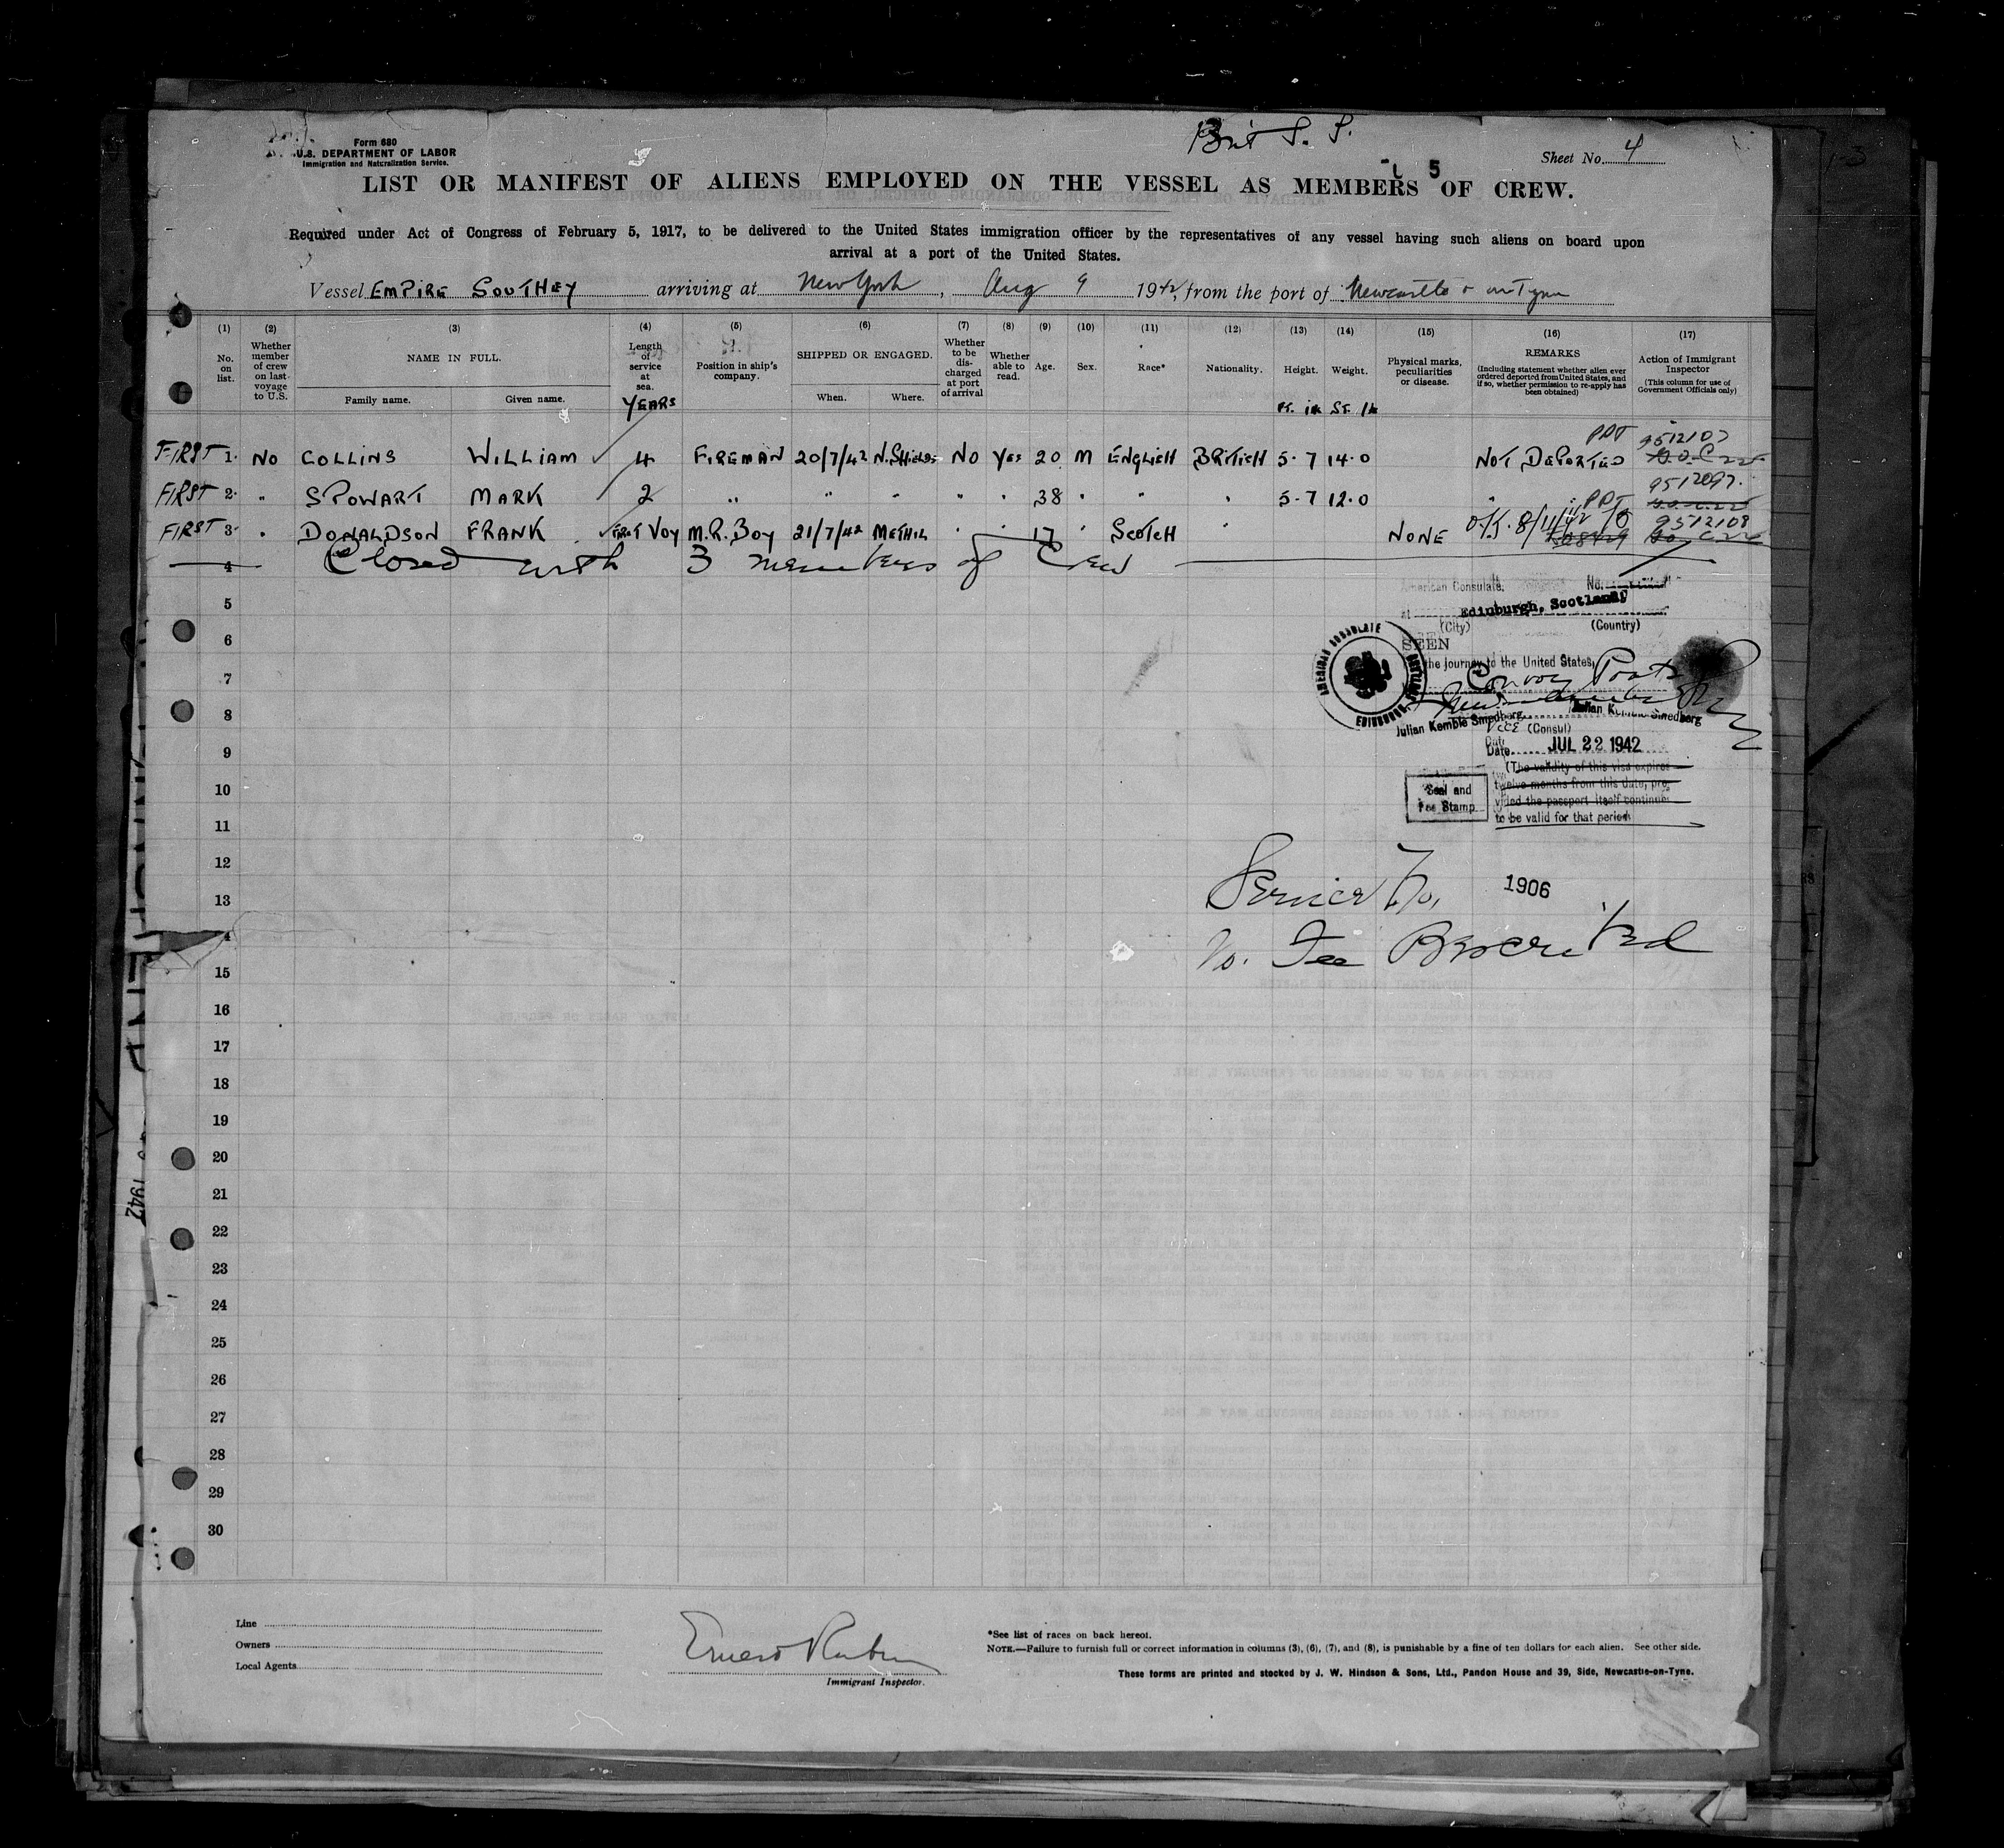 Brit S. S.
Form 680
U.S. DEPARTMENT OF LABOR
Immigration and Naturalization Service.
Sheet No. 4
5
LIST OR MANIFEST OF ALIENS EMPLOYED ON THE VESSEL AS MEMBERS OF CREW.
Required under Act of Congress of February 5, 1917, to be delivered to the United States immigration officer by the representatives of any vessel having such aliens on board upon
arrival at a port of the United States.
Vessel EMPIRE SOUTHEY arriving at New York, Aug 9 1942, from the port of Newcastle on Tyne
(1) (2) (3) (4) (5) (6) (7) (8) (9) (10) (11) (12) (13) (14) (15) (16) (17)
No. on list.
Whether member of crew on last voyage to U.S.
NAME IN FULL.
Family name. Given name.
Length of service at sea.
YEARS
Position in ship's company.
SHIPPED OR ENGAGED.
When. Where.
Whether to be discharged at port of arrival
Whether able to read.
Age.
Sex.
Race*
Nationality.
Height.
Weight.
Physical marks, peculiarities or disease.
REMARKS
(Including statement whether alien ever ordered deported from United States, and if so, whether permission to re-apply has been obtained)
Action of Immigrant Inspector
(This column for use of Government Officials only)
FIRST 1. NO COLLINS WILLIAM 4 FIREMAN 20/7/42 N. SHIELDS NO YES 20 M ENGLISH BRITISH 5.7 14.0 NOT DEPORTED PPT 9512107
FIRST 2. " SPOWART MARK 2 " " " " " 38 " " " 5.7 12.0 " PPT 9512097
FIRST 3. " DONALDSON FRANK FIRST VOY M.R. BOY 21/7/42 METHIL " " 17 " SCOTCH " NONE O.K. 8/11/42 9512108
4 Closed with 3 members of Crew
5
6
7
8
9
10
11
12
13
15
16
17
18
19
20
21
22
23
24
25
26
27
28
29
30
American Consulate, No.
at Edinburgh, Scotland
(City) (Country)
SEEN
the journey to the United States,
Convoy Ports
AMERICAN CONSULATE
EDINBURGH, SCOTLAND
Julian Kemble Smedberg Julian Kemble Smedberg
VICE (Consul)
Date JUL 22 1942
(The validity of this visa expires
twelve months from this date, pro-
vided the passport itself continues
to be valid for that period
Seal and
Fee Stamp
Service No. 1906
No. Fee Prescribed
1942
Line
Owners
Local Agents
Immigrant Inspector.
*See list of races on back hereof.
NOTE.—Failure to furnish full or correct information in columns (3), (6), (7), and (8), is punishable by a fine of ten dollars for each alien. See other side.
These forms are printed and stocked by J. W. Hindson & Sons, Ltd., Pandon House and 39, Side, Newcastle-on-Tyne.